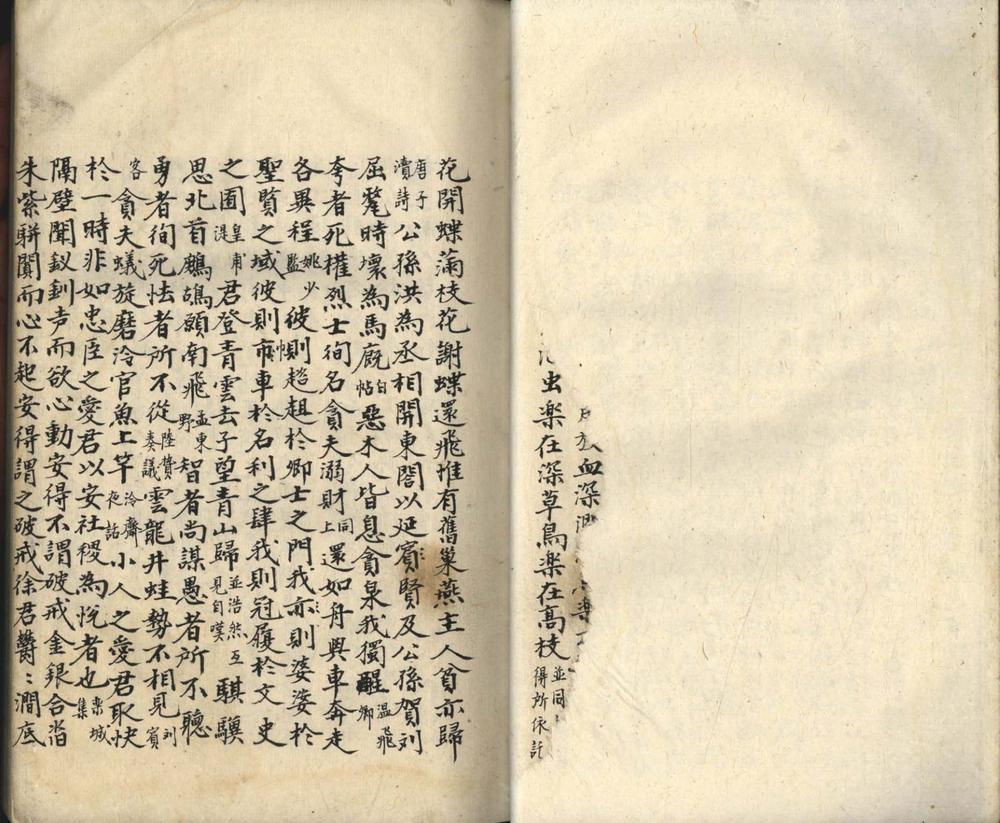 血深
虫楽在深草鳥楽在高枝並同得所依託
花開蝶滿枝花謝蝶還飛惟有舊巢燕主人貧亦歸
唐子瀆詩公孫洪為丞相開東閤以延賓賢及公孫賀刘
屈氂時壞為馬廐白帖惡木人皆息貪泉我獨醒温飛卿
夸者死權烈士徇名貪夫溺財同上還如舟與車奔走
各異程姚少監彼則趦趄於卿士之門我亦則婆娑於
聖賢之域彼則巾車於名利之肆我則冠履於文史
之囿皇甫湜君登青雲去子望青山歸並浩然互見自嘆騏驥
思北首鷓鴣願南飛孟東野智者尚謀愚者所不聽
勇者徇死怯者所不從陸贄奏議雲龍井蛙勢不相見刘賓
客貪夫蟻旋磨冷官魚上竿冷齋夜話小人之愛君取快
於一時非如忠臣之愛君以安社稷為悅者也栾城集
隔壁聞釵釧声而欲心動安得不謂破戒金銀合沓
朱紫駢闐而心不起安得謂之破戒徐君鬱〻澗底